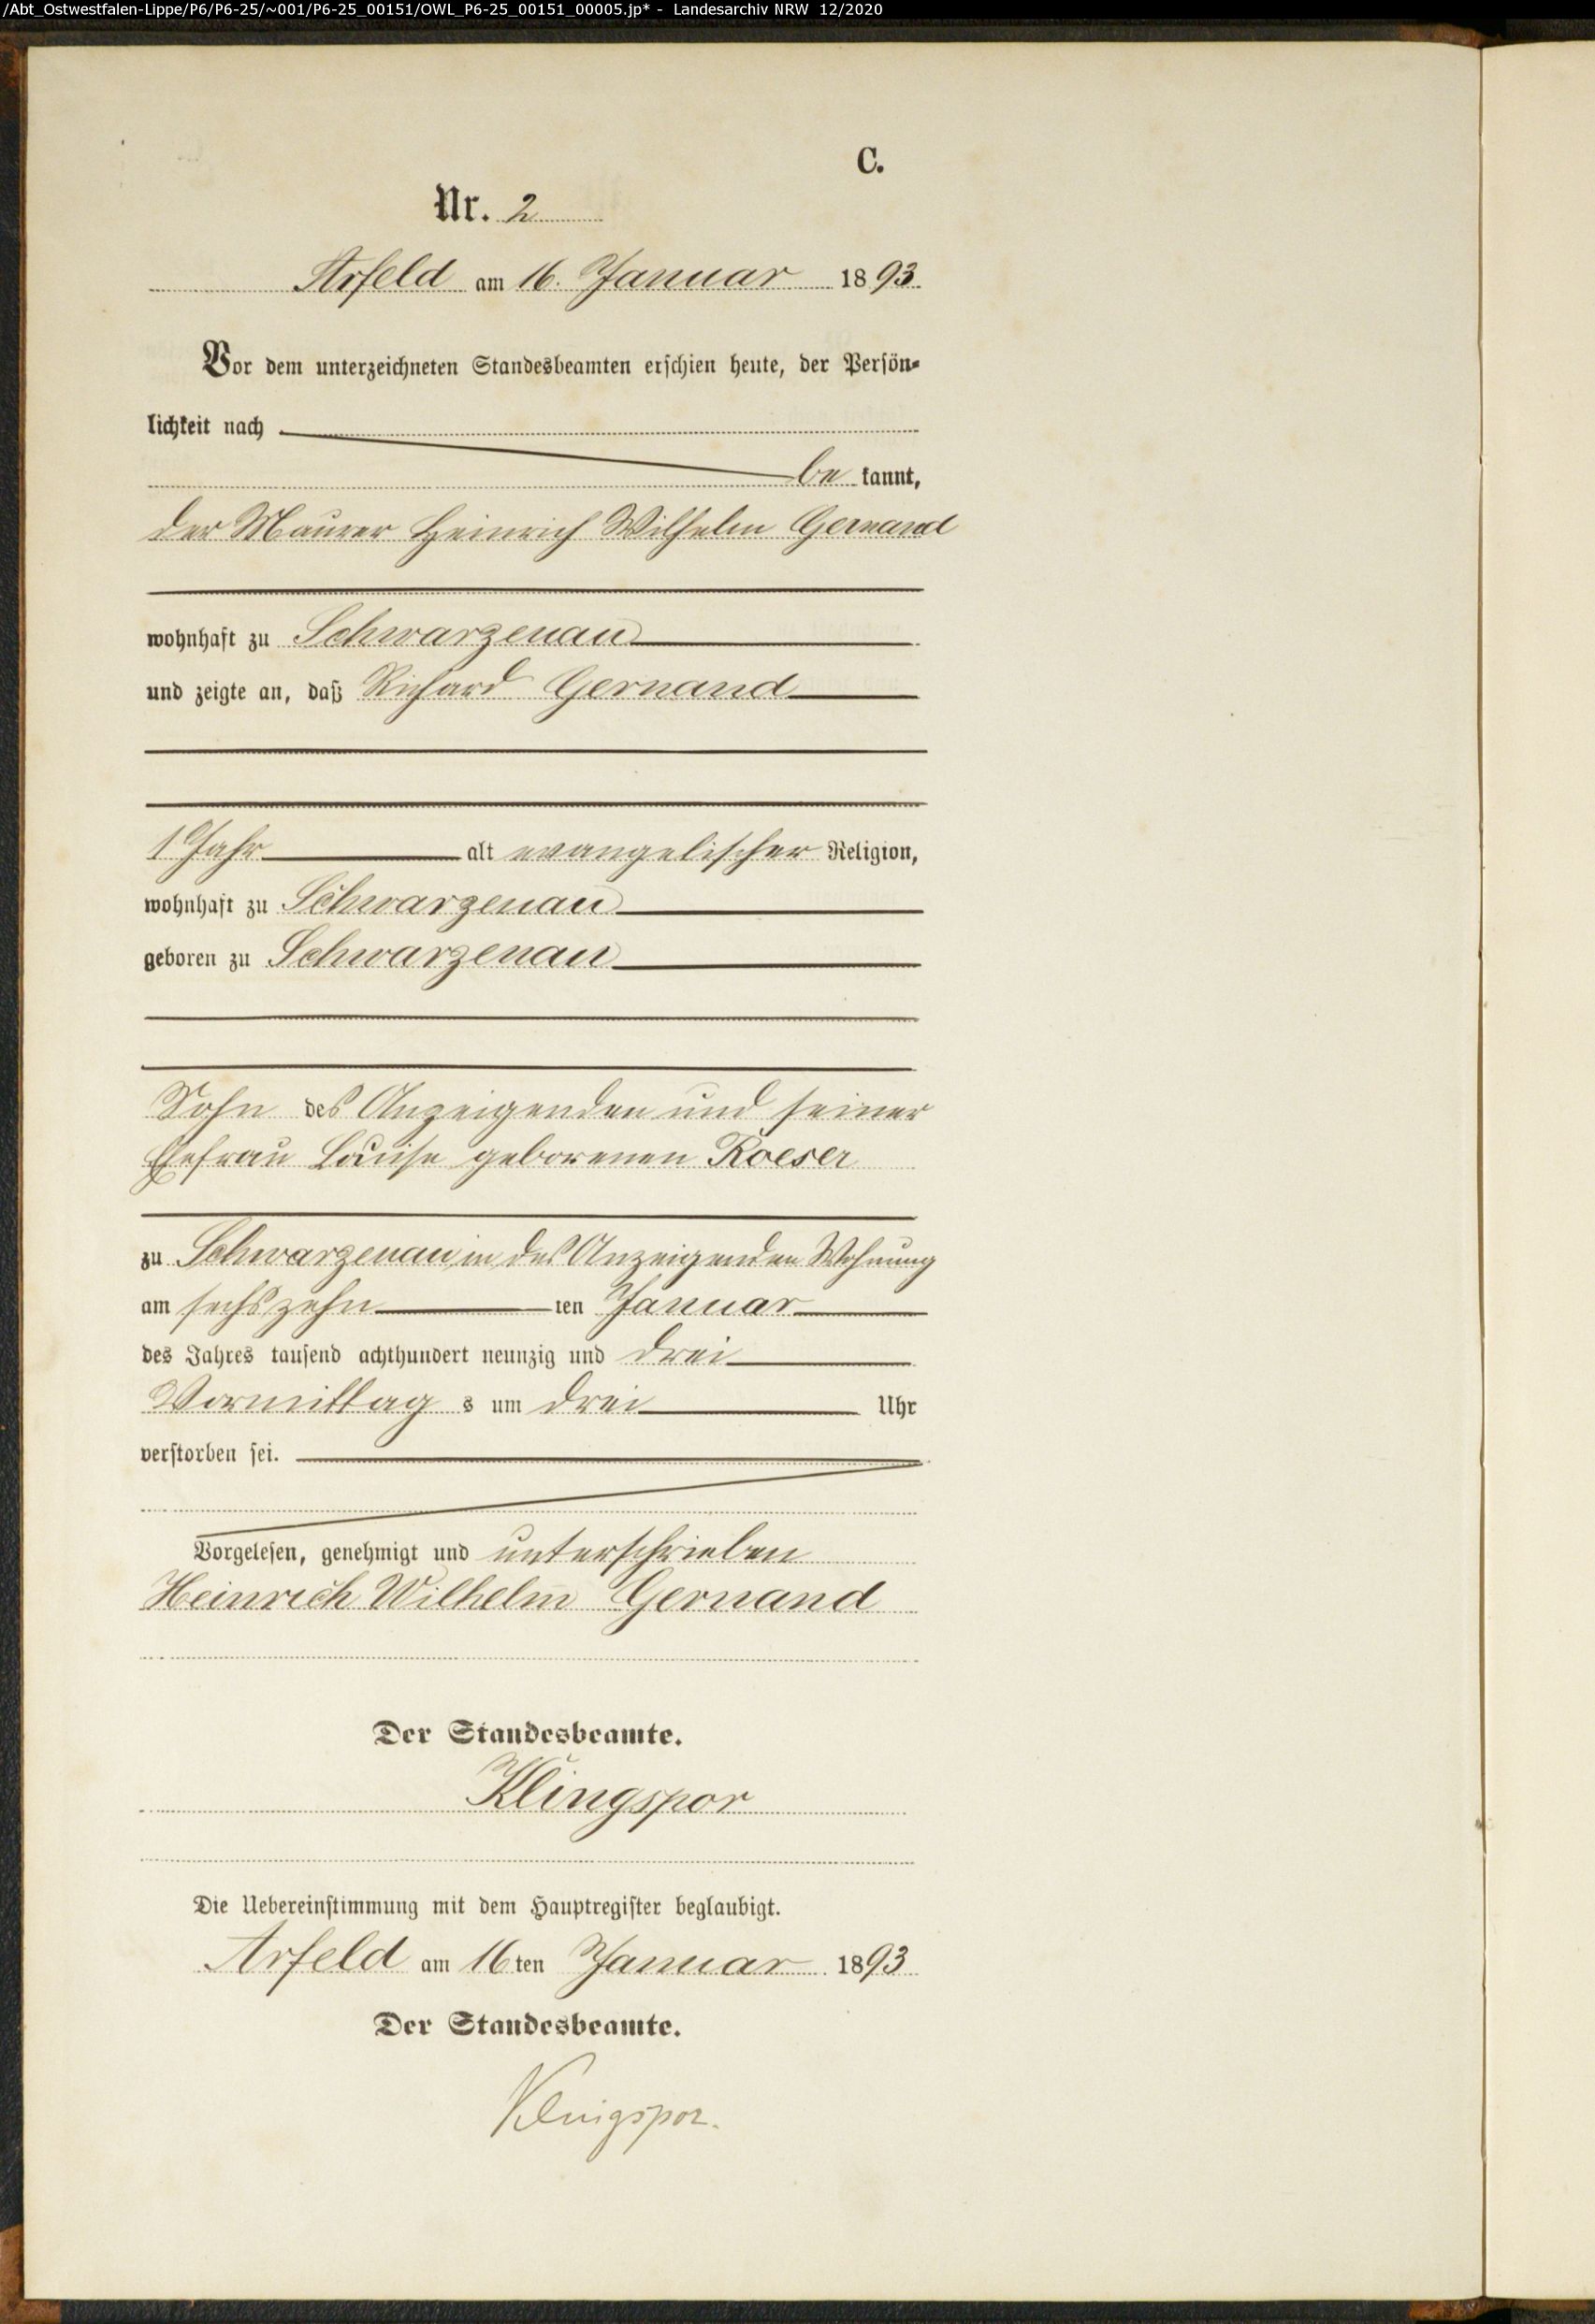 /Abt_Ostwestfalen-Lippe/P6/P6-25/~001/P6-25_00151/OWL_P6-25_00151_00005.jp* - Landesarchiv NRW 12/2020
C.
Nr. 2
Arfeld am 16. Januar 1893.
Vor dem unterzeichneten Standesbeamten erschien heute, der Persön-
lichkeit nach
be kannt,
der Maurer Heinrich Wilhelm Gernand
wohnhaft zu Schwarzenau
und zeigte an, daß Richard Gernand
1 Jahr alt evangelischer Religion,
wohnhaft zu Schwarzenau
geboren zu Schwarzenau
Sohn des Anzeigenden und seiner
Ehefrau Louise geborenen Roeser
zu Schwarzenau in des Anzeigenden Wohnung
am sechszehn ten Januar
des Jahres tausend achthundert neunzig und drei
Vormittag s um drei Uhr
verstorben sei.
Vorgelesen, genehmigt und unterschrieben
Heinrich Wilhelm Gernand
Der Standesbeamte.
Klingspor
Die Uebereinstimmung mit dem Hauptregister beglaubigt.
Arfeld am 16ten Januar 1893.
Der Standesbeamte.
Klingspor.